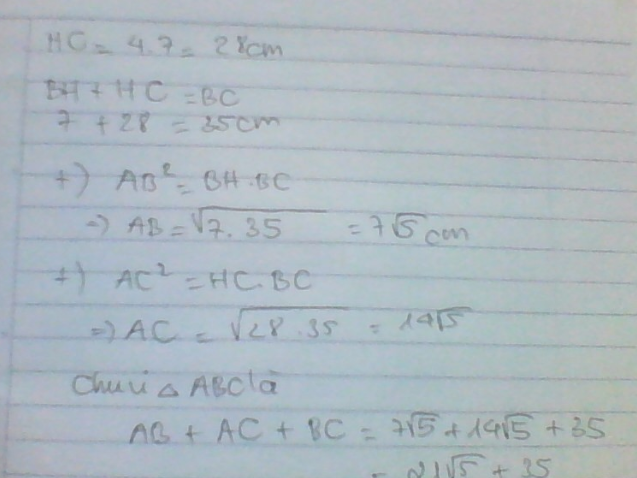 HC = 4.7 = 28cm
BH + HC = BC
7 + 28 = 35cm
+) AB² = BH.BC
=) AB = √7.35 = 7√5 cm
+) AC² = HC.BC
=) AC = √28.35 = 14√5
Chu vi △ ABC là
AB + AC + BC = 7√5 + 14√5 + 35
= 21√5 + 35